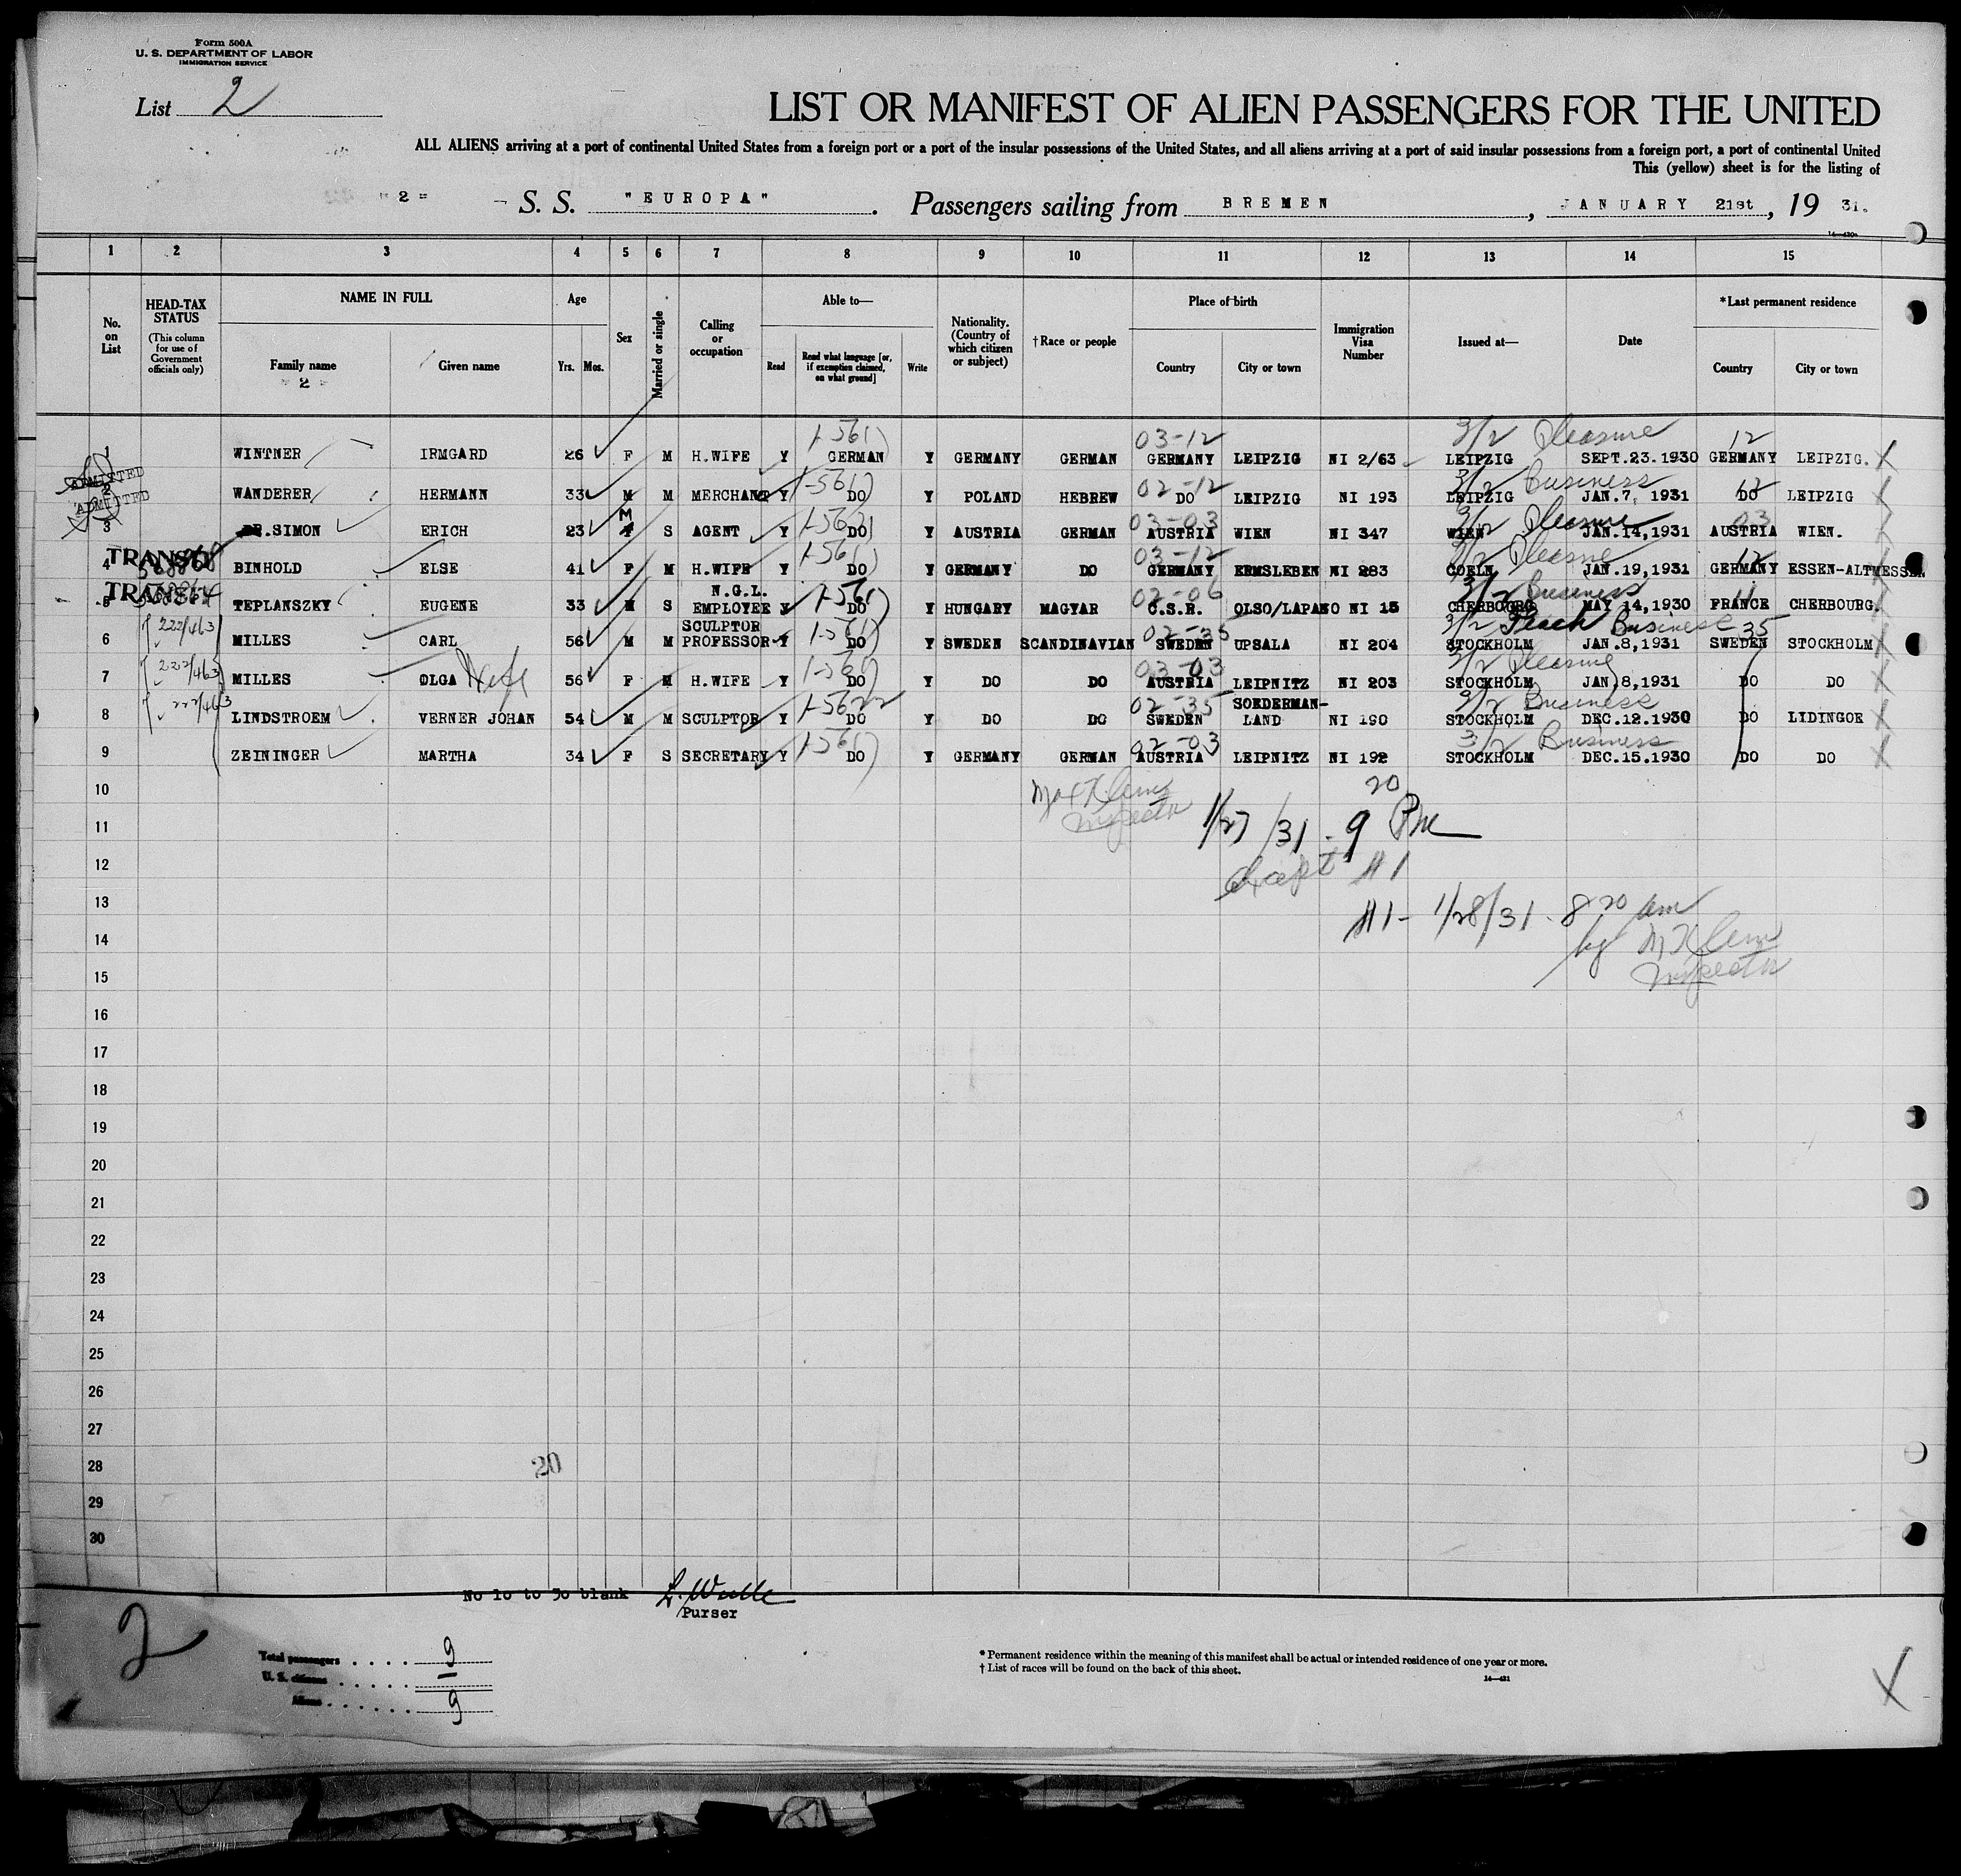 Form 500A
U. S. DEPARTMENT OF LABOR
IMMIGRATION SERVICE
List 2
LIST OR MANIFEST OF ALIEN PASSENGERS FOR THE UNITED
ALL ALIENS arriving at a port of continental United States from a foreign port or a port of the insular possessions of the United States, and all aliens arriving at a port of said insular possessions from a foreign port, a port of continental United
This (yellow) sheet is for the listing of
- 2 - S. S. "EUROPA". Passengers sailing from BREMEN, JANUARY 21st, 19 31.
1 2 3 4 5 6 7 8 9 10 11 12 13 14 15
No. on List HEAD-TAX STATUS (This column for use of Government officials only) NAME IN FULL Family name Given name Age Yrs. Mos. Sex Married or single Calling or occupation Able to— Read Read what language [or, if exemption claimed, on what ground] Write Nationality. (Country of which citizen or subject) †Race or people Place of birth Country City or town Immigration Visa Number Issued at— Date *Last permanent residence Country City or town
2
1-561 03-12 3/2 Pleasure 12
1 WINTNER IRMGARD 26 F M H.WIFE Y GERMAN Y GERMANY GERMAN GERMANY LEIPZIG NI 2/63 LEIPZIG SEPT.23.1930 GERMANY LEIPZIG. X
ADMITTED 1-561 02-12 3/2 Business 12
2 WANDERER HERMANN 33 M M MERCHANT Y DO Y POLAND HEBREW DO LEIPZIG NI 193 LEIPZIG JAN.7, 1931 DO LEIPZIG
ADMITTED M 1-561 03-03 3/2 Pleasure 03
3 DR.SIMON ERICH 23 F S AGENT Y DO Y AUSTRIA GERMAN AUSTRIA WIEN NI 347 WIEN JAN.14,1931 AUSTRIA WIEN.
TRANSIT 1-561 03-12 3/2 Pleasure 12
4 BINHOLD ELSE 41 F M H.WIFE Y DO Y GERMANY DO GERMANY ERMSLEBEN NI 283 COELN JAN.19,1931 GERMANY ESSEN-ALTMESSEN
TRANSIT N.G.L. 1-561 02-06 3/2 Business 11
5 TEPLANSZKY EUGENE 33 M S EMPLOYEE Y DO Y HUNGARY MAGYAR C.S.R. OLSO/LAPANO NI 15 CHERBOURG MAY 14,1930 FRANCE CHERBOURG.
222/463 SCULPTOR 1-561 02-35 3/2 Teach Business 35
6 MILLES CARL 56 M M PROFESSOR Y DO Y SWEDEN SCANDINAVIAN SWEDEN UPSALA NI 204 STOCKHOLM JAN.8,1931 SWEDEN STOCKHOLM
222/463 Wife 1-561 03-03 3/2 Pleasure
7 MILLES OLGA 56 F M H.WIFE Y DO Y DO DO AUSTRIA LEIPNITZ NI 203 STOCKHOLM JAN.8,1931 DO DO X
222/463 1-5622 02-35 SOEDERMAN- 3/2 Business
8 LINDSTROEM VERNER JOHAN 54 M M SCULPTOR Y DO Y DO DO SWEDEN LAND NI 190 STOCKHOLM DEC.12.1930 DO LIDINGOE X
1-561 02-03 3/2 Business
9 ZEININGER MARTHA 34 F S SECRETARY Y DO Y GERMANY GERMAN AUSTRIA LEIPNITZ NI 192 STOCKHOLM DEC.15.1930 DO DO X
10
Inspector 1/27/31 - 9 20 Pm
11
12 Except #1
13 #1 - 1/28/31 - 8 20 am
14 by M Klein
15 Inspector
16
17
18
19
20
21
22
23
24
25
26
27
28 20
29
30
No 10 to 30 blank
Purser
2
Total passengers 9
U. S. citizens —
Aliens 9
* Permanent residence within the meaning of this manifest shall be actual or intended residence of one year or more.
† List of races will be found on the back of this sheet.
14—421
X